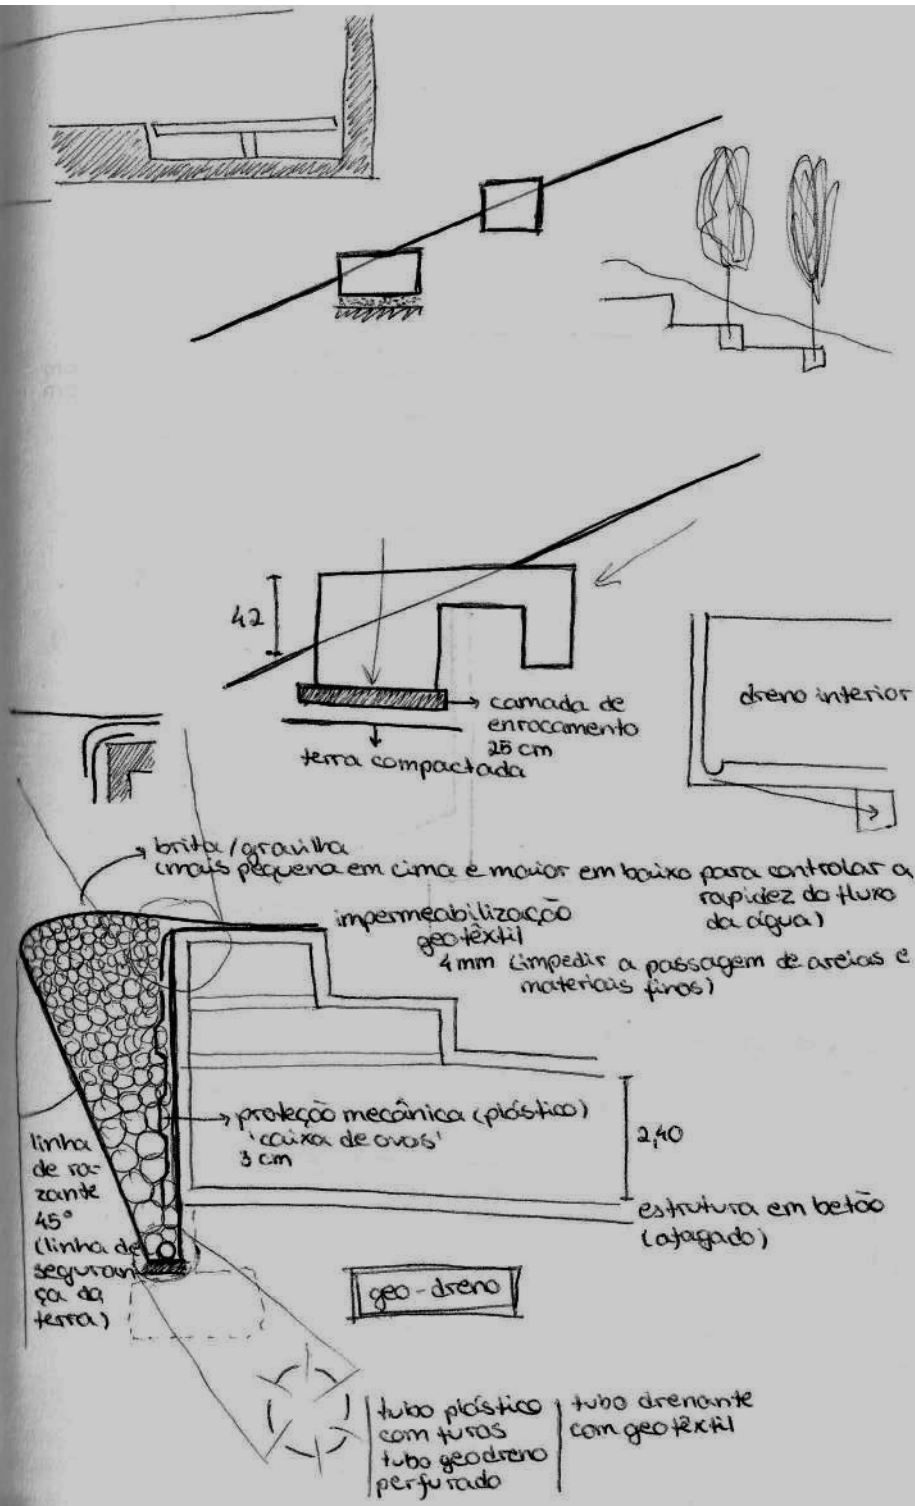 42
camada de
enrocamento
25 cm
terra compactada
dreno interior
brita/gravilha
(mais pequena em cima e maior em baixo para controlar a
rapidez do fluxo
da água)
impermeabilização
geotêxtil
4mm (impedir a passagem de areias e
materiais finos)
proteção mecânica (plástico)
'caixa de ovos'
3 cm
2,40
linha
de ra-
zante
45°
(linha de
seguran-
ça da
terra)
estrutura em betão
(afagado)
geo-dreno
tubo plástico
com furos
tubo geodreno
perfurado
tubo drenante
com geotêxtil